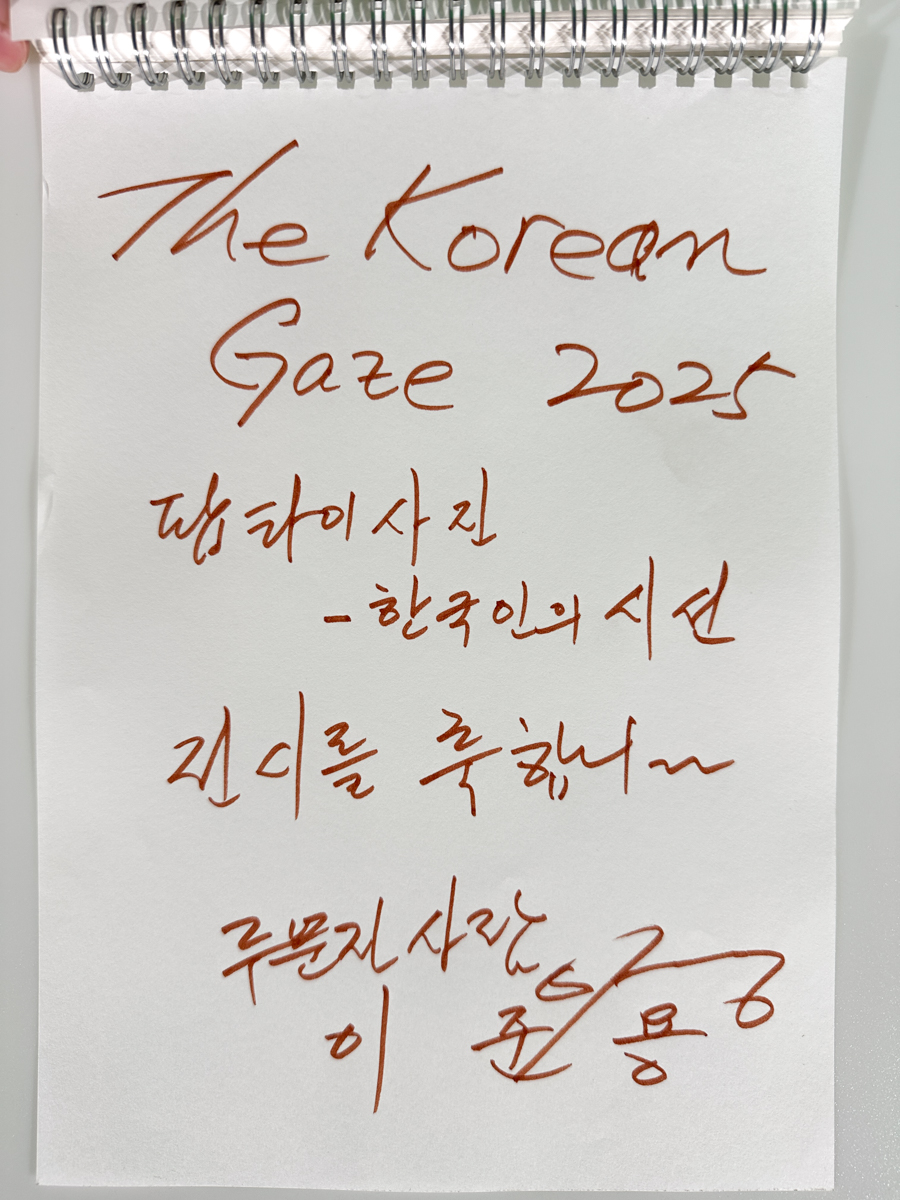 The Korean
Gaze 2025
탐타이사진
-한국인의 시선
전시를 축하합니~~
주문진 사랑
이 준 용